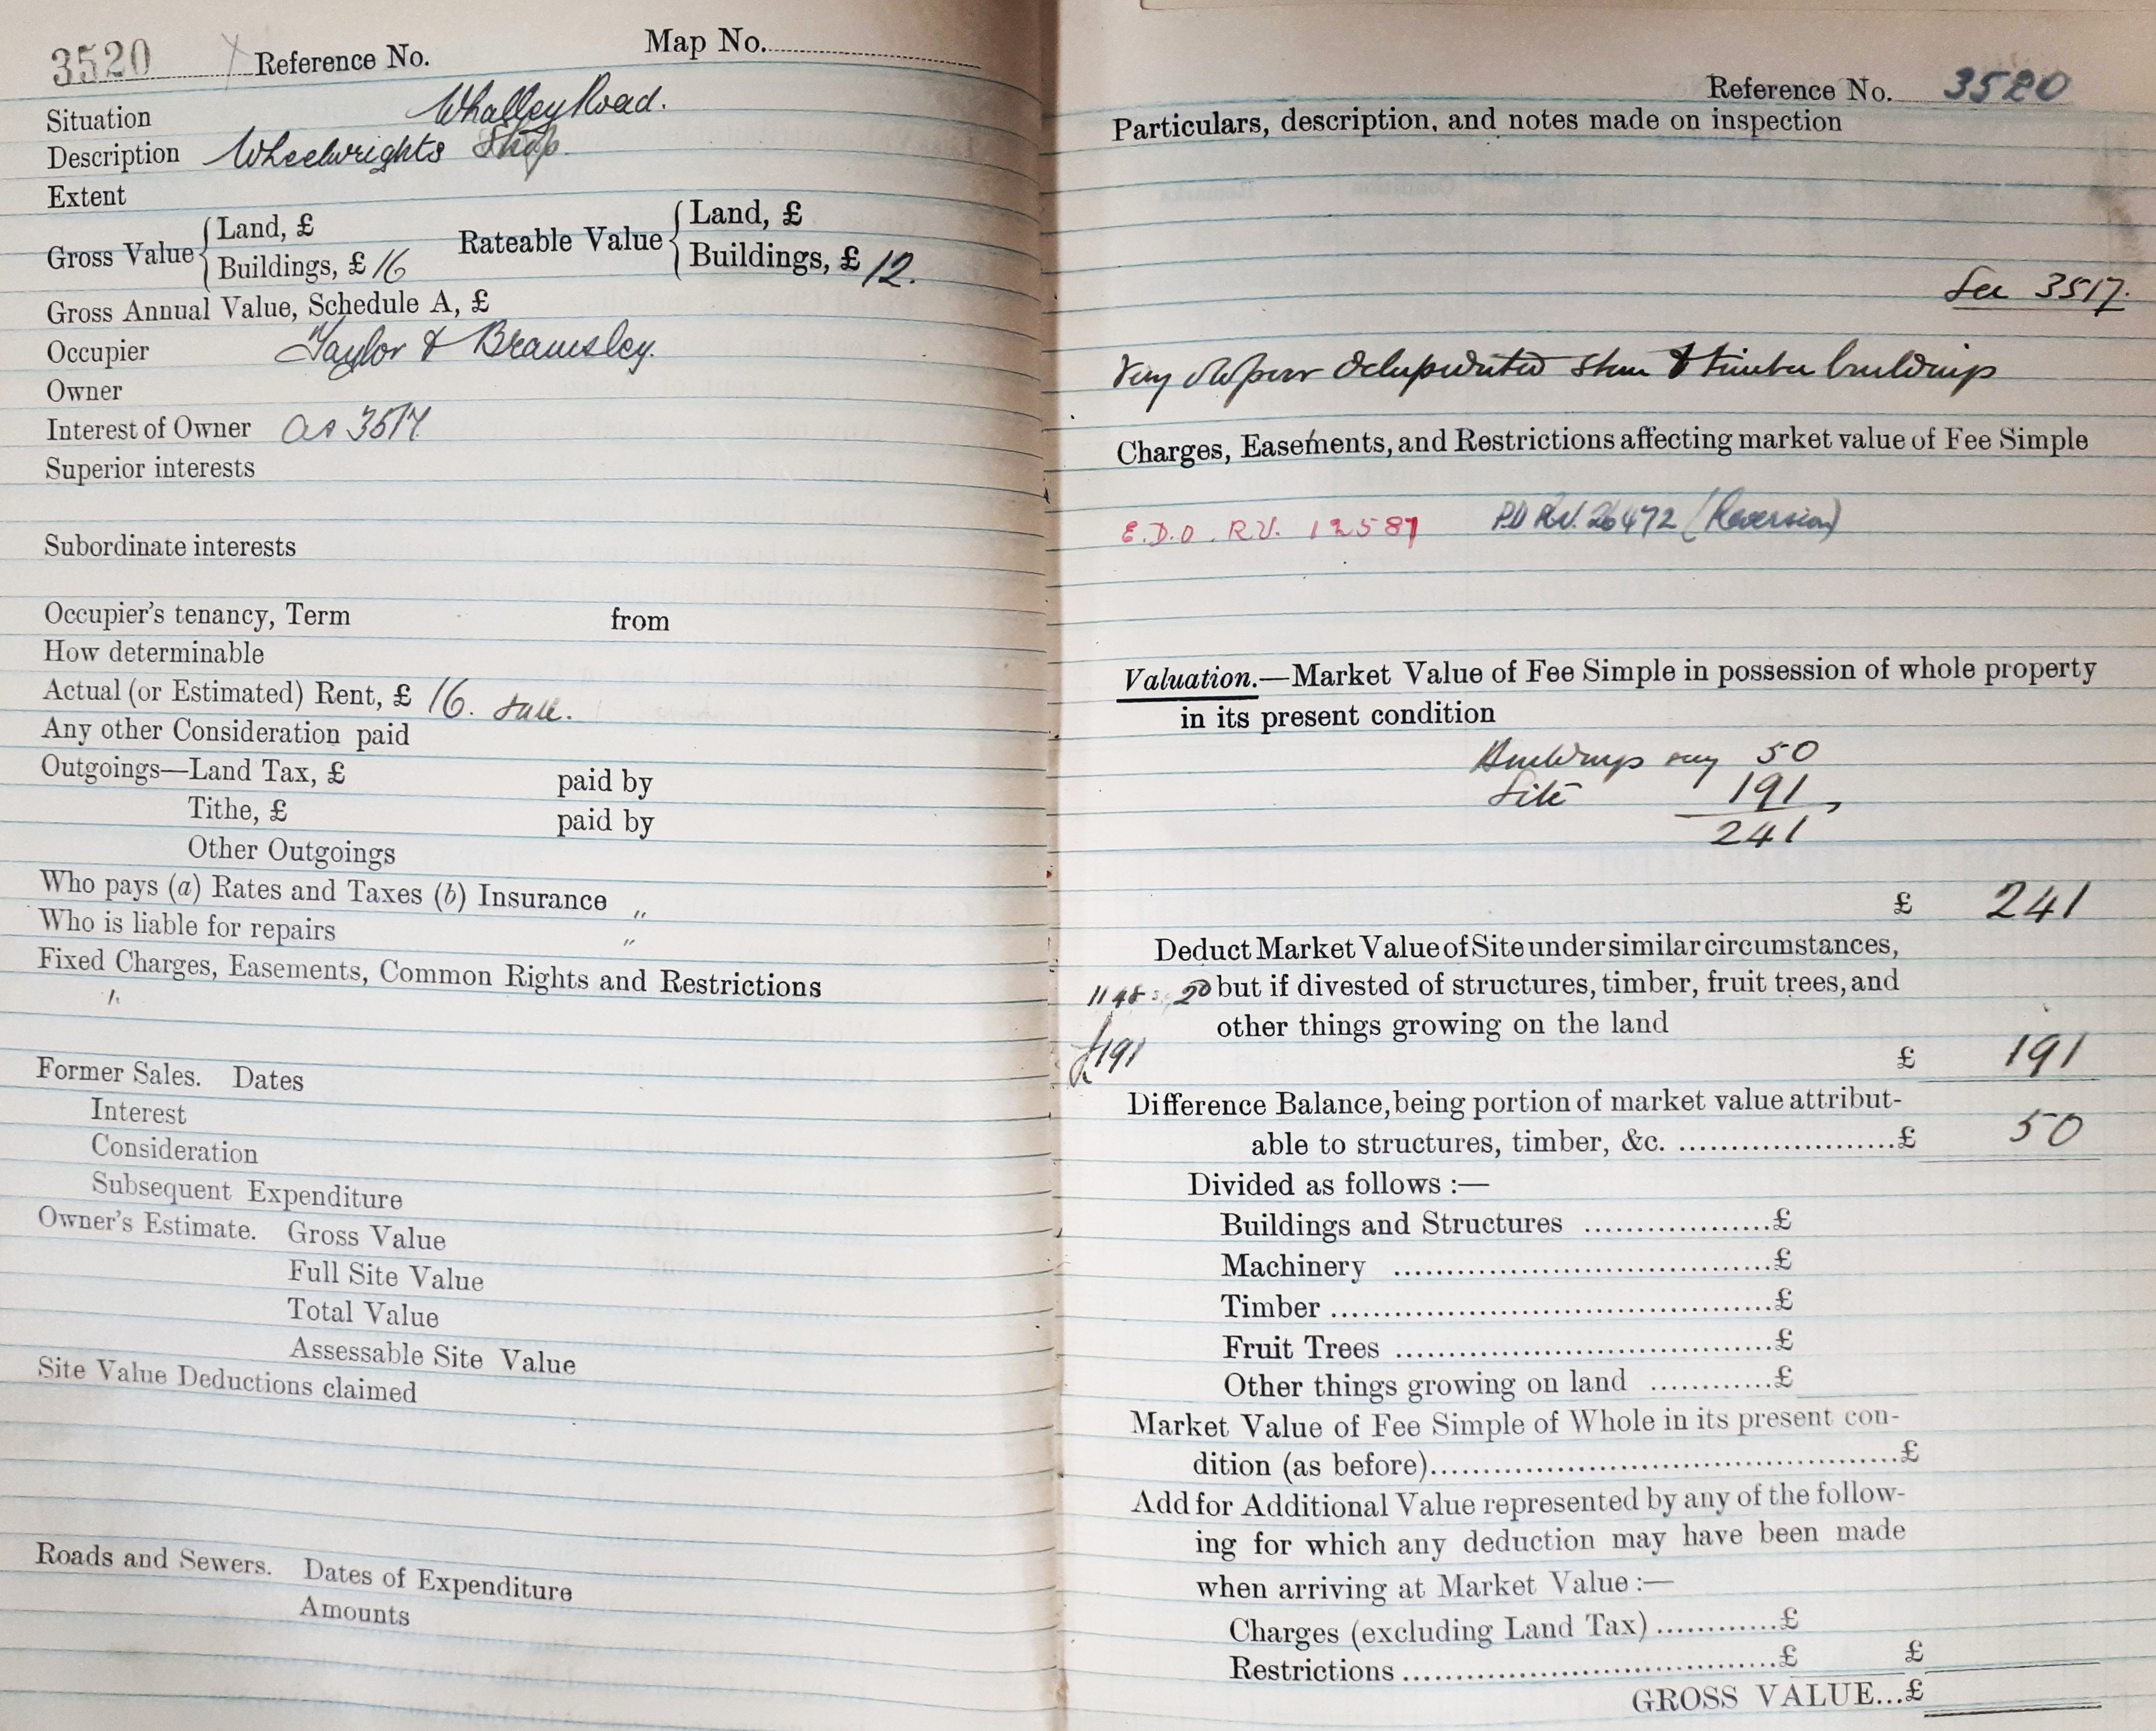 3520 Reference No. Map No.
Situation Whalley Road.
Description Wheelwrights Shop
Extent
Gross Value { Land, £
Buildings, £ 16
Rateable Value { Land, £
Buildings, £ 12.
Gross Annual Value, Schedule A, £
Occupier Taylor & Bramsley.
Owner
Interest of Owner as 3517.
Superior interests
Subordinate interests
Occupier's tenancy, Term from
How determinable
Actual (or Estimated) Rent, £ 16.
Any other Consideration paid
Outgoings—Land Tax, £ paid by
Tithe, £ paid by
Other Outgoings
Who pays (a) Rates and Taxes (b) Insurance "
Who is liable for repairs "
Fixed Charges, Easements, Common Rights and Restrictions
"
Former Sales. Dates
Interest
Consideration
Subsequent Expenditure
Owner's Estimate. Gross Value
Full Site Value
Total Value
Assessable Site Value
Site Value Deductions claimed
Roads and Sewers. Dates of Expenditure
Amounts
Reference No. 3520
Particulars, description, and notes made on inspection
See 3517.
Very old poor delapidated stone & timber buildings
Charges, Easements, and Restrictions affecting market value of Fee Simple
E.D.O. R.V. 12587 PD RV. 26472 (Reversion)
Valuation.—Market Value of Fee Simple in possession of whole property
in its present condition
Buildings say 50
Site 191
241
£ 241
Deduct Market Value of Site under similar circumstances,
1148 20 but if divested of structures, timber, fruit trees, and
other things growing on the land
£191 £ 191
Difference Balance, being portion of market value attribut-
able to structures, timber, &c. ......................£ 50
Divided as follows :—
Buildings and Structures ...................£
Machinery ......................................£
Timber ............................................£
Fruit Trees ......................................£
Other things growing on land ............£
Market Value of Fee Simple of Whole in its present con-
dition (as before)...............................................£
Add for Additional Value represented by any of the follow-
ing for which any deduction may have been made
when arriving at Market Value :—
Charges (excluding Land Tax) ............£
Restrictions .....................................£ £
GROSS VALUE...£